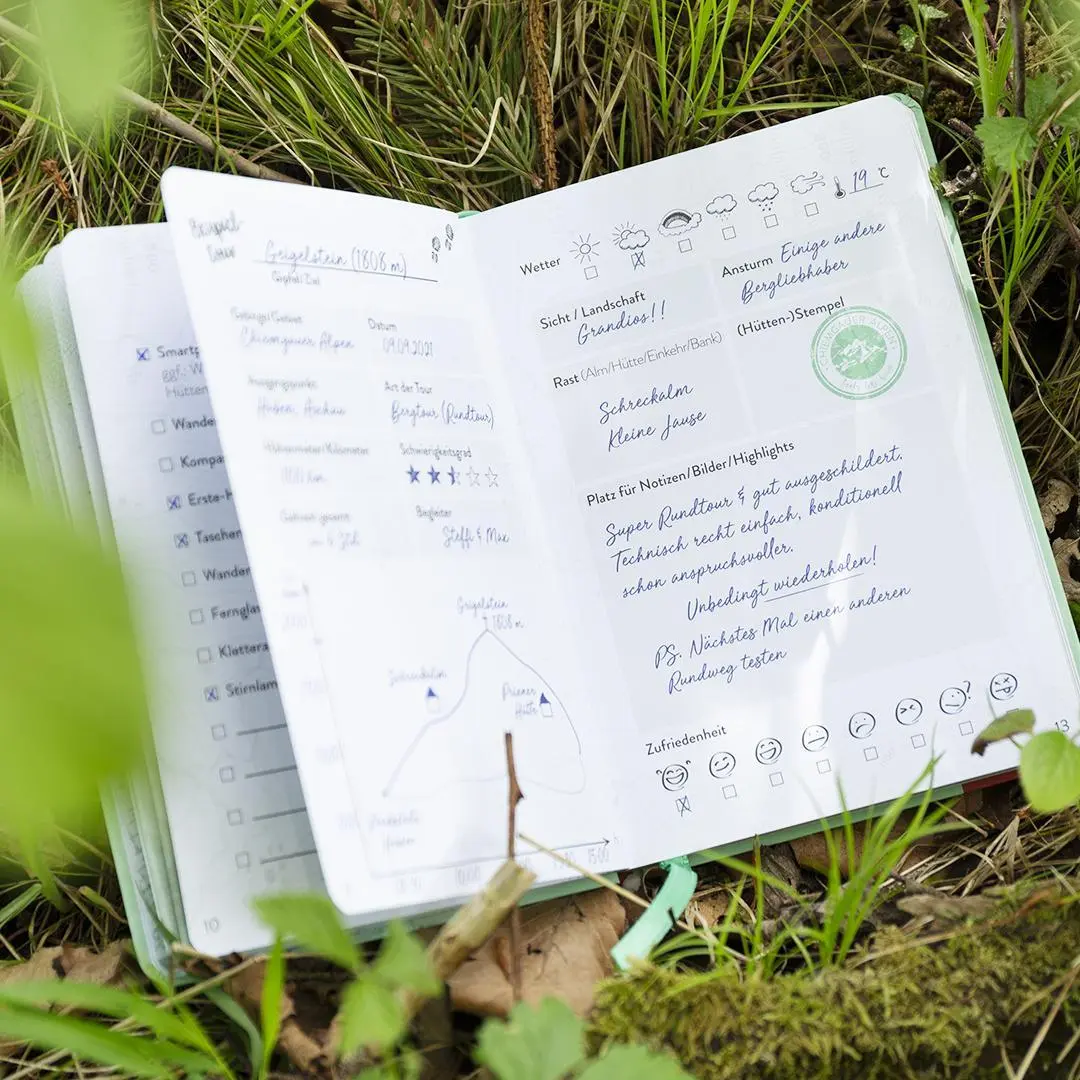 Smartp
ggf.: W
Hütten
Wander
Kompa
Erste-H
Taschen
Wander
Fernglas
Kletter
Stirnlam
10
Beispiel-
Tour
Geigelstein (1808 m)
Gipfel/Ziel
Datum
Chiemgauer Alpen
09.09.2021
Ausgangspunkt
Art der Tour
Huben, Aschau
Bergtour (Rundtour)
Höhenmeter/Kilometer
Schwierigkeitsgrad
Begleiter
Steffi & Max
Geigelstein
1808 m
Priener
Hütte
15:00
Wetter
19 °C
Sicht / Landschaft
Grandios!!
Ansturm Einige andere
Bergliebhaber
Rast (Alm/Hütte/Einkehr/Bank)
Schreckalm
Kleine Jause
(Hütten-)Stempel
CHIEMGAUER ALPEN
Platz für Notizen/Bilder/Highlights
Super Rundtour & gut ausgeschildert.
Technisch recht einfach, konditionell
schon anspruchsvoller.
Unbedingt wiederholen!
PS. Nächstes Mal einen anderen
Rundweg testen
Zufriedenheit
13